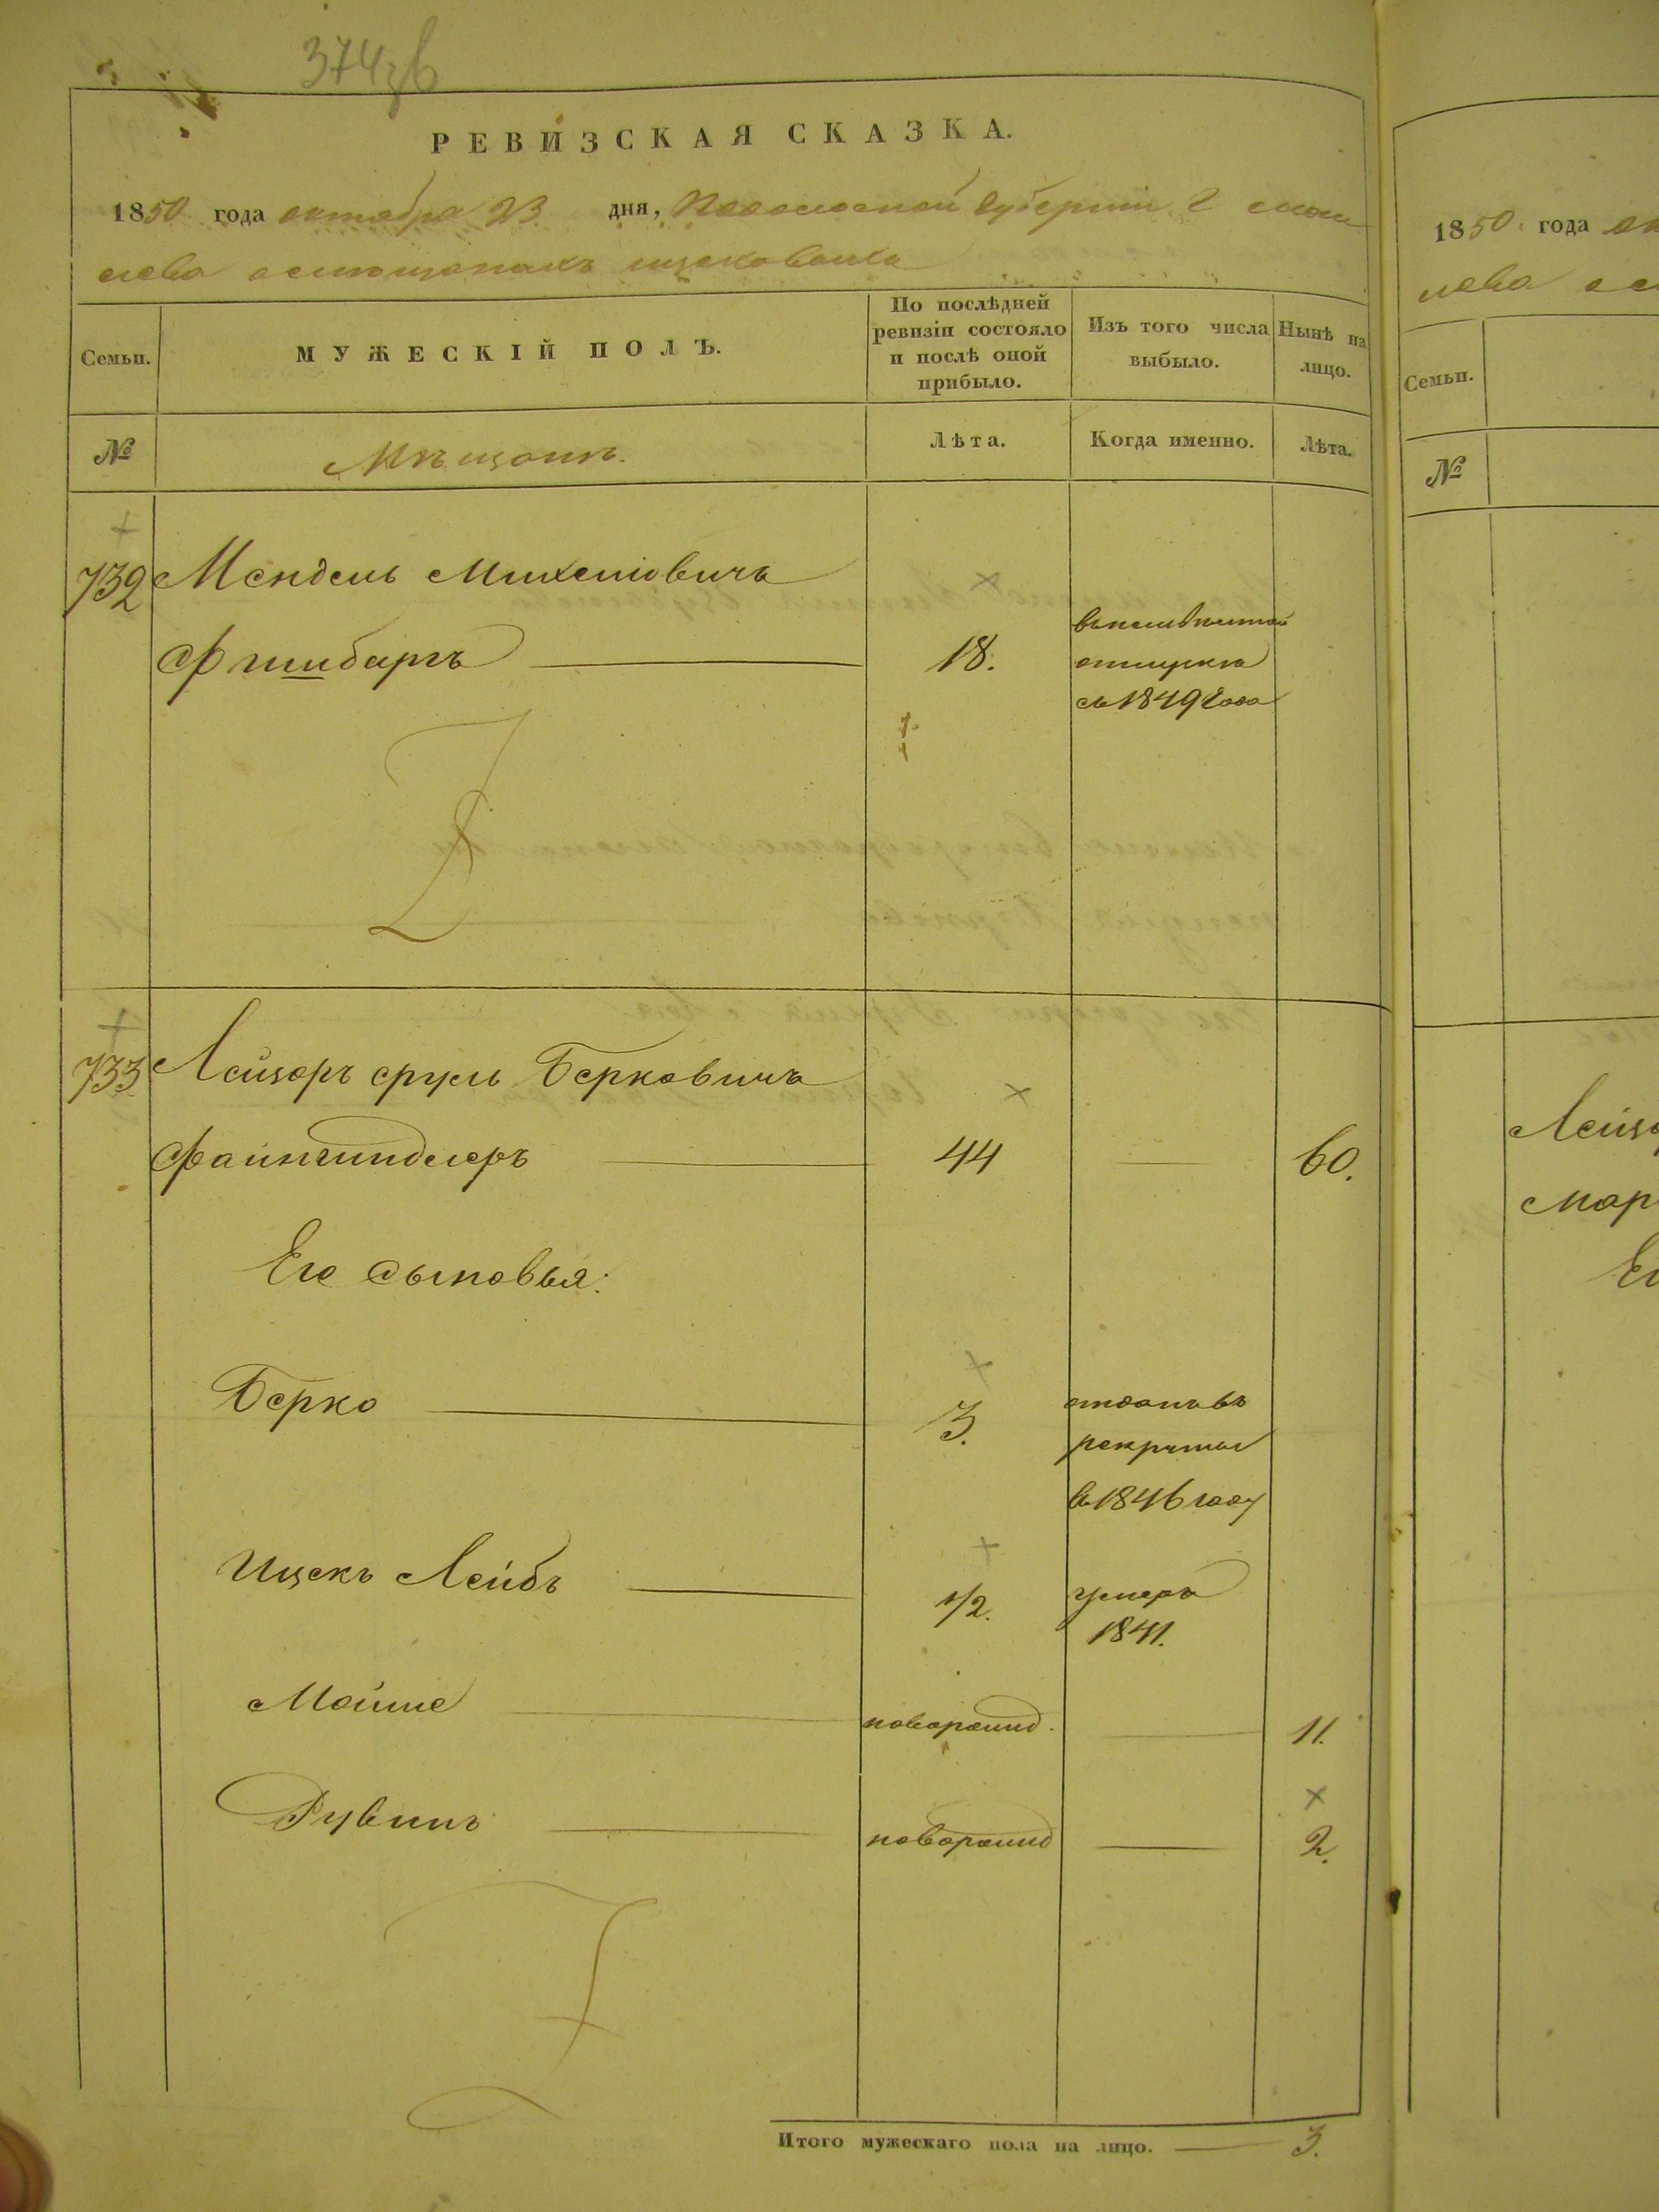 374зв
РЕВИЗСКАЯ СКАЗКА.
1850 года октября 23 дня, Подольской Губерніи Г. Моги
лева о мѣщанахъ
1850 года ок
лева о
Семьи.
МУЖЕСКІЙ ПОЛЪ.
По послѣдней
ревизіи состояло
и послѣ оной
прибыло.
Изъ того числа
выбыло.
Нынѣ на
лицо.
Семьи.
№
Мѣщанъ.
Лѣта.
Когда именно.
Лѣта.
№
732 Мендель Михелювичъ
Фишбаргъ 18.
отлучкѣ
съ 1849 года
733 Лейзоръ сруль Берковичъ
Файнгиндлеръ 44 60.
Его сыновья:
Берко 3. отданъ въ
рекруты
въ 1846 году
Ицекъ Лейбъ 1/2. умеръ
1841.
Мойше новорожд. 11.
Рувинъ новорожд 2.
Итого мужескаго пола на лицо. 3.
Лейзо
мар
Ег